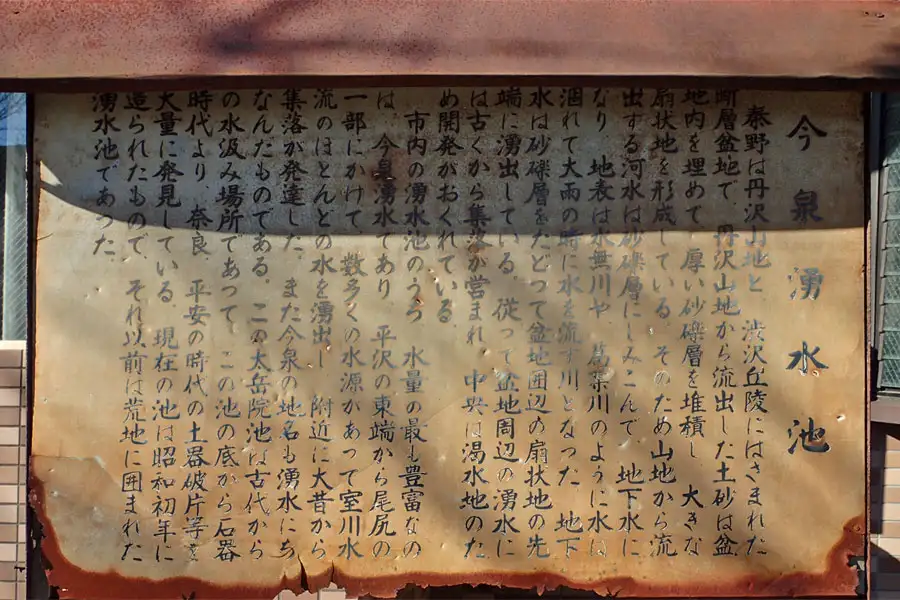 今泉湧水池
秦野は丹沢山地と 渋沢丘陵にはさまれた
断層盆地で、丹沢山地から流出した土砂は盆
地内を埋めて 厚い砂礫層を堆積し 大きな
扇状地を形成している。そのため山地から流
出する河水は砂礫層にしみこんで、地下水に
なり 地表は水無川や、葛葉川のように水は
涸れて大雨の時に水を流す川となった 地下
水は砂礫層をたどって盆地囲辺の扇状地の先
端に湧出している。従って盆地周辺の湧水に
は古くから集落が営まれ 中央は渇水地のた
め開発がおくれている。
市内の湧水池のうち 水量の最も豊富なの
は、今泉湧水であり 平沢の東端から尾尻の
一部にかけて、数多くの水源があって室川水
流のほとんどの水を湧出し 附近に大昔から
集落が発達した。また今泉の地名も湧水にち
なんだものである。この太岳院池は古代から
の水汲み場所であって、この池の底から石器
時代より、奈良 平安の時代の土器破片等を
大量に発見している。現在の池は昭和初年に
造られたもので、それ以前は荒地に囲まれた
湧水池であった。